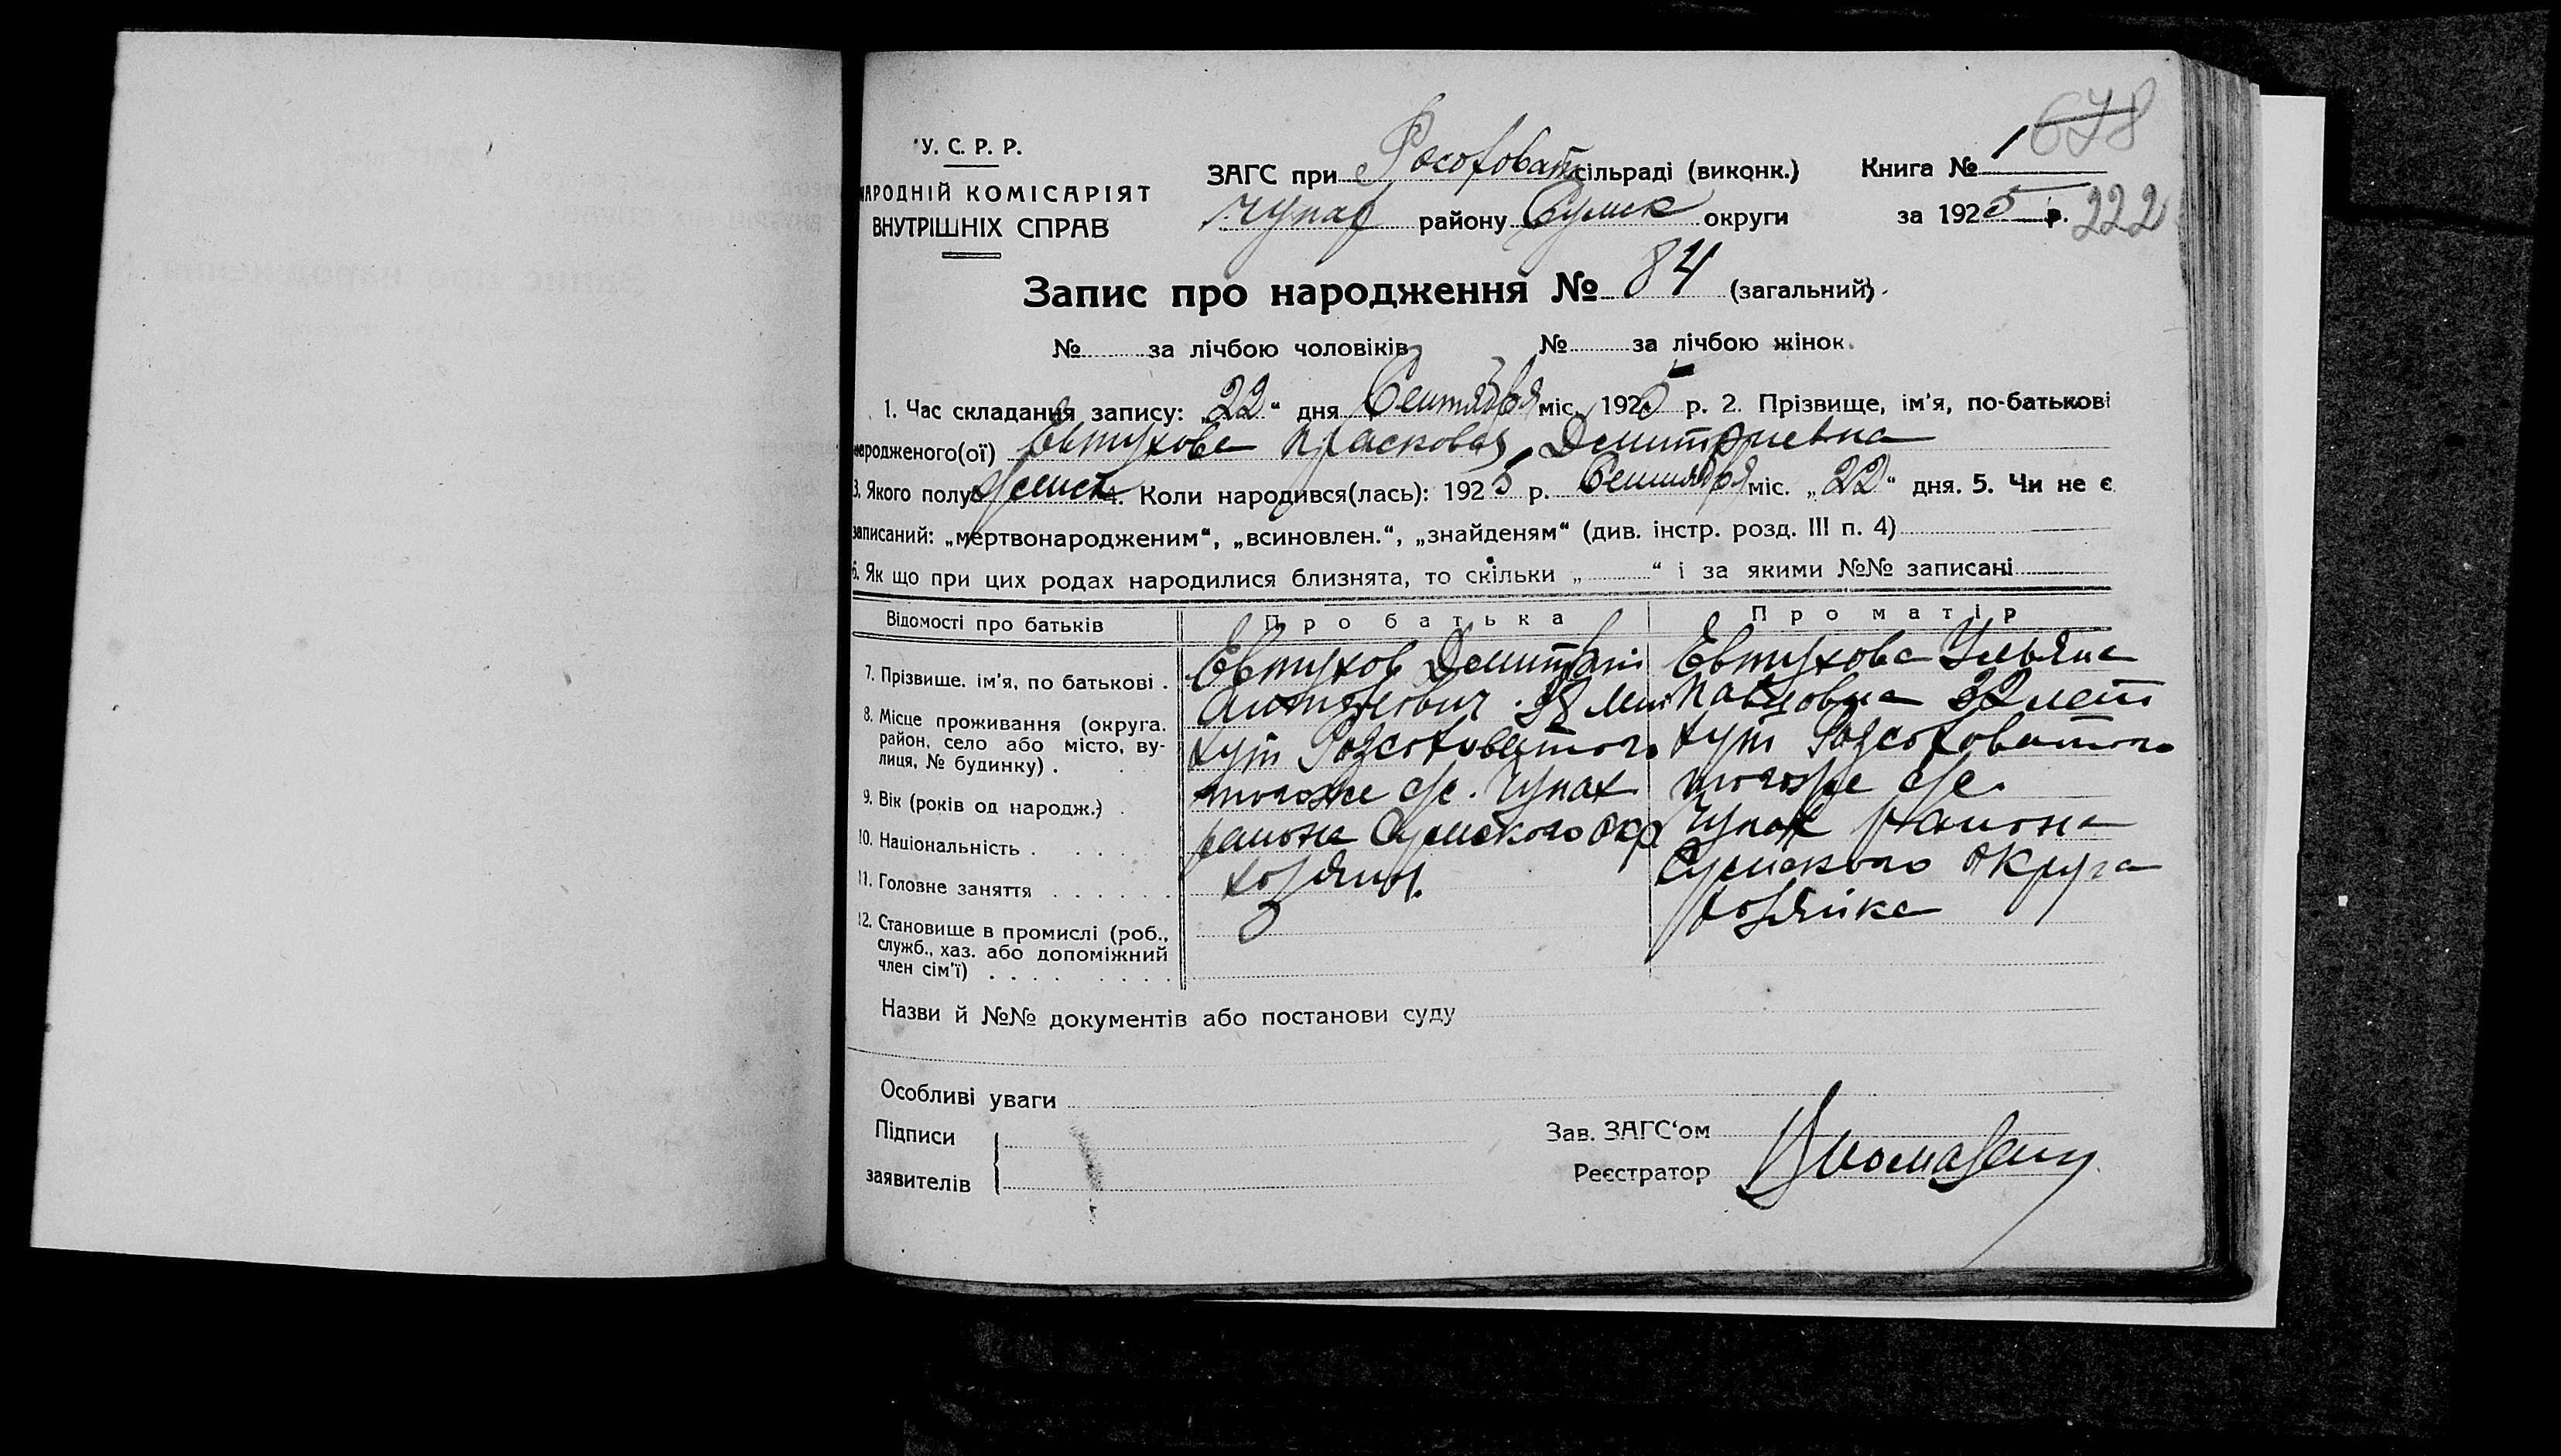 678
У. С. Р. Р.
НАРОДНІЙ КОМІСАРІЯТ
ВНУТРІШНІХ СПРАВ
ЗАГС при Росоховат сільраді (виконк.)
Чупах району Сумск округи
Книга № 1
за 1925 р. 222
Запис про народження № 84 (загальний)
№ за лічбою чоловіків № за лічбою жінок.
1. Час складання запису: „22“ дня Сентября міс. 1925 р. 2. Прізвище, ім'я, по-батькові
народженого(ої) Евтухова Прасковая Демитриевна
3. Якого полу женск 4. Коли народився(лась): 1925 р. Сентября міс. „22“ дня. 5. Чи не є
записаний: „мертвонародженим“, „всиновлен.“, „знайденям“ (див. інстр. розд. III п. 4)
6. Як що при цих родах народилися близнята, то скільки „ “ і за якими №№ записані
Відомості про батьків Про батька Про матір
7. Прізвище, ім'я, по батькові .
8. Місце проживання (округа,
район, село або місто, ву-
лиця, № будинку) .
9. Вік (років од народж.) .
10. Національність . . . .
11. Головне заняття . . . . . .
12. Становище в промислі (роб.,
служб., хаз. або допоміжний
член сім'ї) . . . . . . . .
Евтухов Демитрий
38 лет
хут Розсоховатого
тогоже с/с. Чупах
района Сумского окр
хозяин.
Евтухова Ульяна
Павловна 32 лет
хут Розсоховатого
тогоже с/с.
Чупах района
Сумского округа
хозяйка
Назви й №№ документів або постанови суду
Особливі уваги
Підписи
заявителів
Зав. ЗАГС'ом
Реєстратор